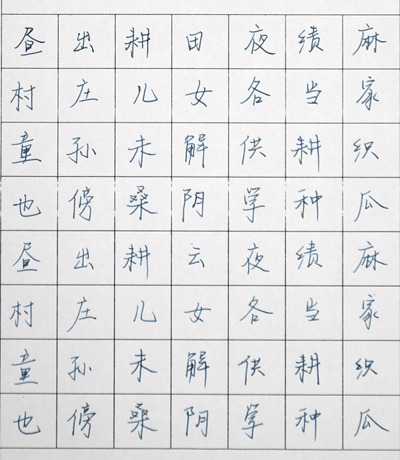 昼出耕田夜绩麻
村庄儿女各当家
童孙未解供耕织
也傍桑阴学种瓜
昼出耕云夜绩麻
村庄儿女各当家
童孙未解供耕织
也傍桑阴学种瓜